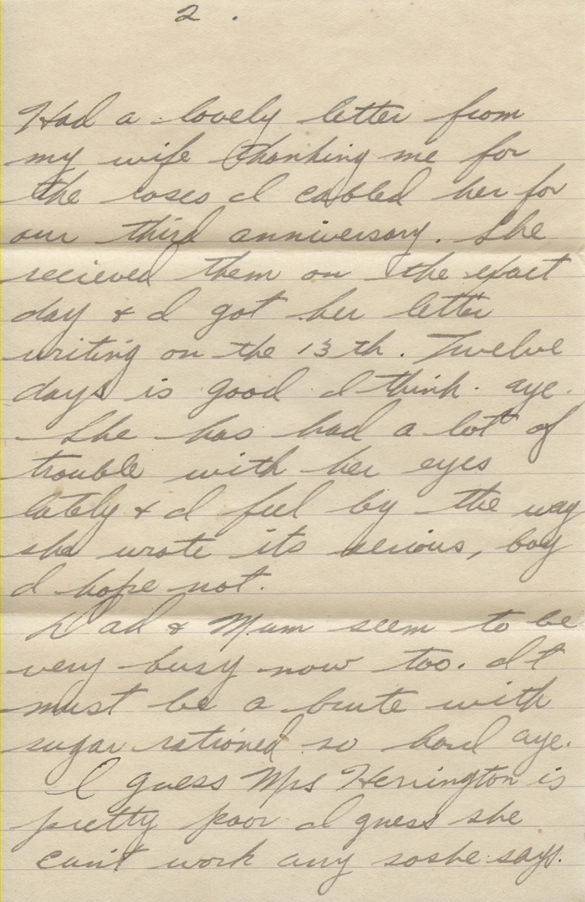 2.
Had a lovely letter from
my wife thanking me for
the roses I cabled her for
our third anniversary. She
recieved them on the exact
day & I got her letter
writing on the 13th. Twelve
days is good I think. aye.
She has had a lot of
trouble with her eyes
lately & I feel by the way
she wrote its serious, boy
I hope not.
Dad & Mum seem to be
very busy now too. It
must be a brute with
sugar rationed so hard aye.
I guess Mrs Herrington is
pretty poor I guess she
can't work any soshe says.